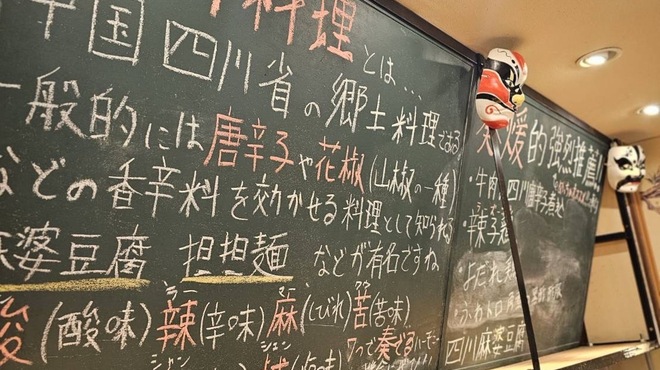 料理とは...
中国四川省の郷土料理である
一般的には唐辛子や花椒(山椒の一種)
などの香辛料を効かせる料理として知られる
麻婆豆腐 担担麺 などが有名ですね
酸(酸味)辣(辛味)麻(しびれ)苦(苦味)
ラー
クウ
シャン
シェン
7つで奏でるハーモニー
媛的強烈推薦
・牛肉の四川唐辛子煮込
・辣子鶏
・よだれ鶏
・ふわトロ
四川麻婆豆腐